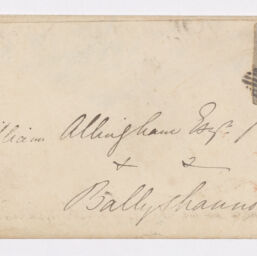 lliam Allingham Esqr.
Ballyshanno